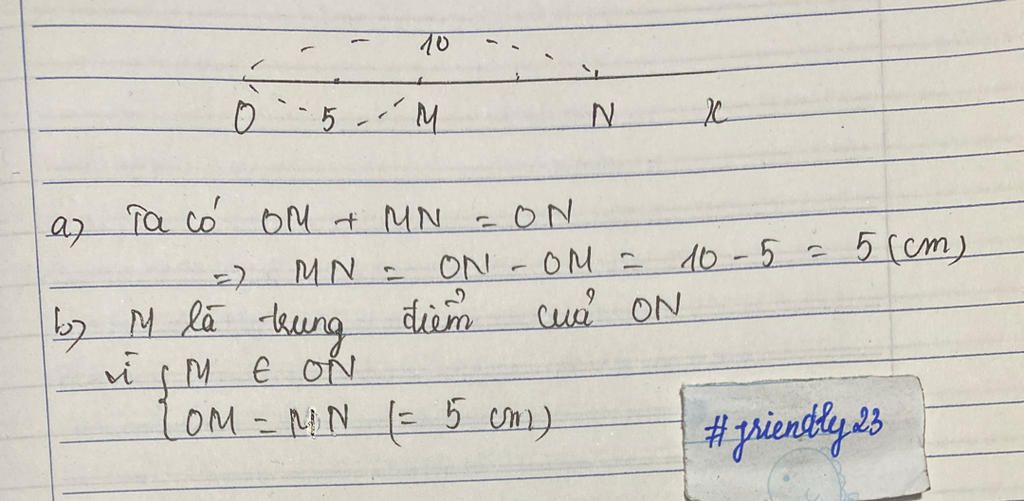 10
O 5 M N x
a) Ta có OM + MN = ON
=> MN = ON - OM = 10 - 5 = 5 (cm)
b) M là trung điểm của ON
vì { M ∈ ON
{ OM = MN (= 5 cm)
#friendly23